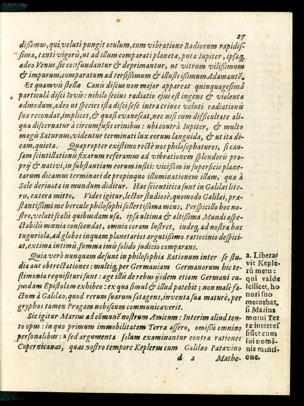 27
dissimus, qui, veluti pungit oculum, cum vibratione Radiorum rapidis-
sima, tanti vigoris, ut ad illum comparati planetæ, puta Iupiter, ipsaq.
adeo Venus sic confundantur & deprimantur, ut vitrum vilissimum
& impurum, comparatum ad tersissimum & illustrissimum Adamante.
Et quamvis stellæ Canis discus non major appareat quinquagesima
particula disci Iovis: nihilo secius radiatio ejus est ingens & violenta
admodum, adeo ut species ista disci sese intra crines veluti radiationis
suæ recondat, implicet, & quasi evanescat, nec nisi cum difficultate ali-
qua discernatur à circumfusis crinibus: ubi contrà Iupiter, & multo
magis Saturnus, videntur terminati lux eorum languida, & ut ita di-
cam, quieta. Quapropter existimo rectè nos philosophaturos, si cau-
sam scintillationis fixarum referamus ad vibrationem splendoris pro-
prij & nativi, in substantiam eorum insiti: vicissim in superficie plane-
tarum dicamus terminari de propinquo illuminationem illam, quæ à
Sole derivata in mundum diditur. Hæc scientifica sunt in Galilæi lite-
ris, cætera mitto. Vides igitur, lector studiose, quomodo Galilæi, præ-
stantissimi me hercule philosophi sollertissima mens, Perspicillo hoc no-
stro, veluti scalis quibusdam usa, ipsa ultima & altissima Mundi aspe-
ctabilis mœnia conscendat, omnia coram lustret, indeq, ad nostra hæc
tuguriola, ad globos inquam planetarios argutissimo ratiocinio despici-
at, extima intimis summa imis solido judicio comparans.
Quia verò nunquam desunt in philosophia Rationum inter se stu-
dia aut obrectationes: multi q, per Germaniam Germanorum hic te-
stimonia requisituri sunt: age illis de rebus ijsdem etiam Germani cu-
jusdam Epistolam exhibeo: ex qua simul & illud patebit; non male fa-
ctum à Galilæo, quod rerum suarum satagens, inventa sua maturè, per
gryphos tamen Pragam nobiscum communicaverit.
Sic igitur Marius ad cõmunẽ nostrum Amicum: Interim aliud ten-
to opus: in quo primum immobilitatem Terræ assero, omissis omnino
personalibus: a sed argumenta solum examinantur contra rationes
Copernicanas, quas nostro tempore Keplerus cum Galilæo Patavino
d 2 Mathe-
a. Libera-
vit Keple-
rũ metu:
qui valdè
scilicet, ho-
nori suo
metuebat,
si Marius
motui Ter
ræ interces
sisset cum
sui nomi-
nis menti-
one.